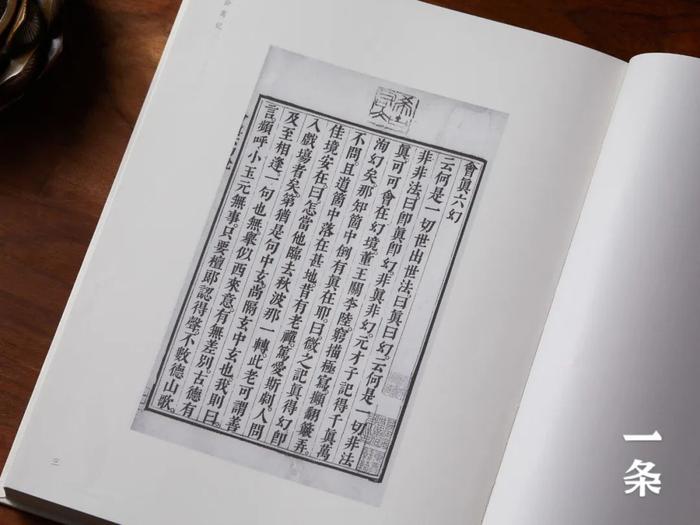 會眞六幻
云何是一切世出世法。曰眞曰幻。云何是一切非法
非非法。曰卽眞卽幻。非眞非幻。元才子記得千眞萬
眞。可可會在幻境。董王關李陸。窮描極寫。攧翻簸弄。
洵幻矣。那知箇中倒有眞在耶。曰微之記眞得幻。卽
不問。且道箇中落在甚地。昔有老禪。篤愛斯劇。人問
佳境安在。曰怎當他臨去秋波那一轉。此老可謂善
入戲場者矣。第猶是句中玄。尚隔玄中玄也。我則曰。
及至相逢一句也無。舉似西來意。有無差別。古德有
言。頻呼小玉元無事。只要檀郎認得聲。不數德山歌。
三
一条